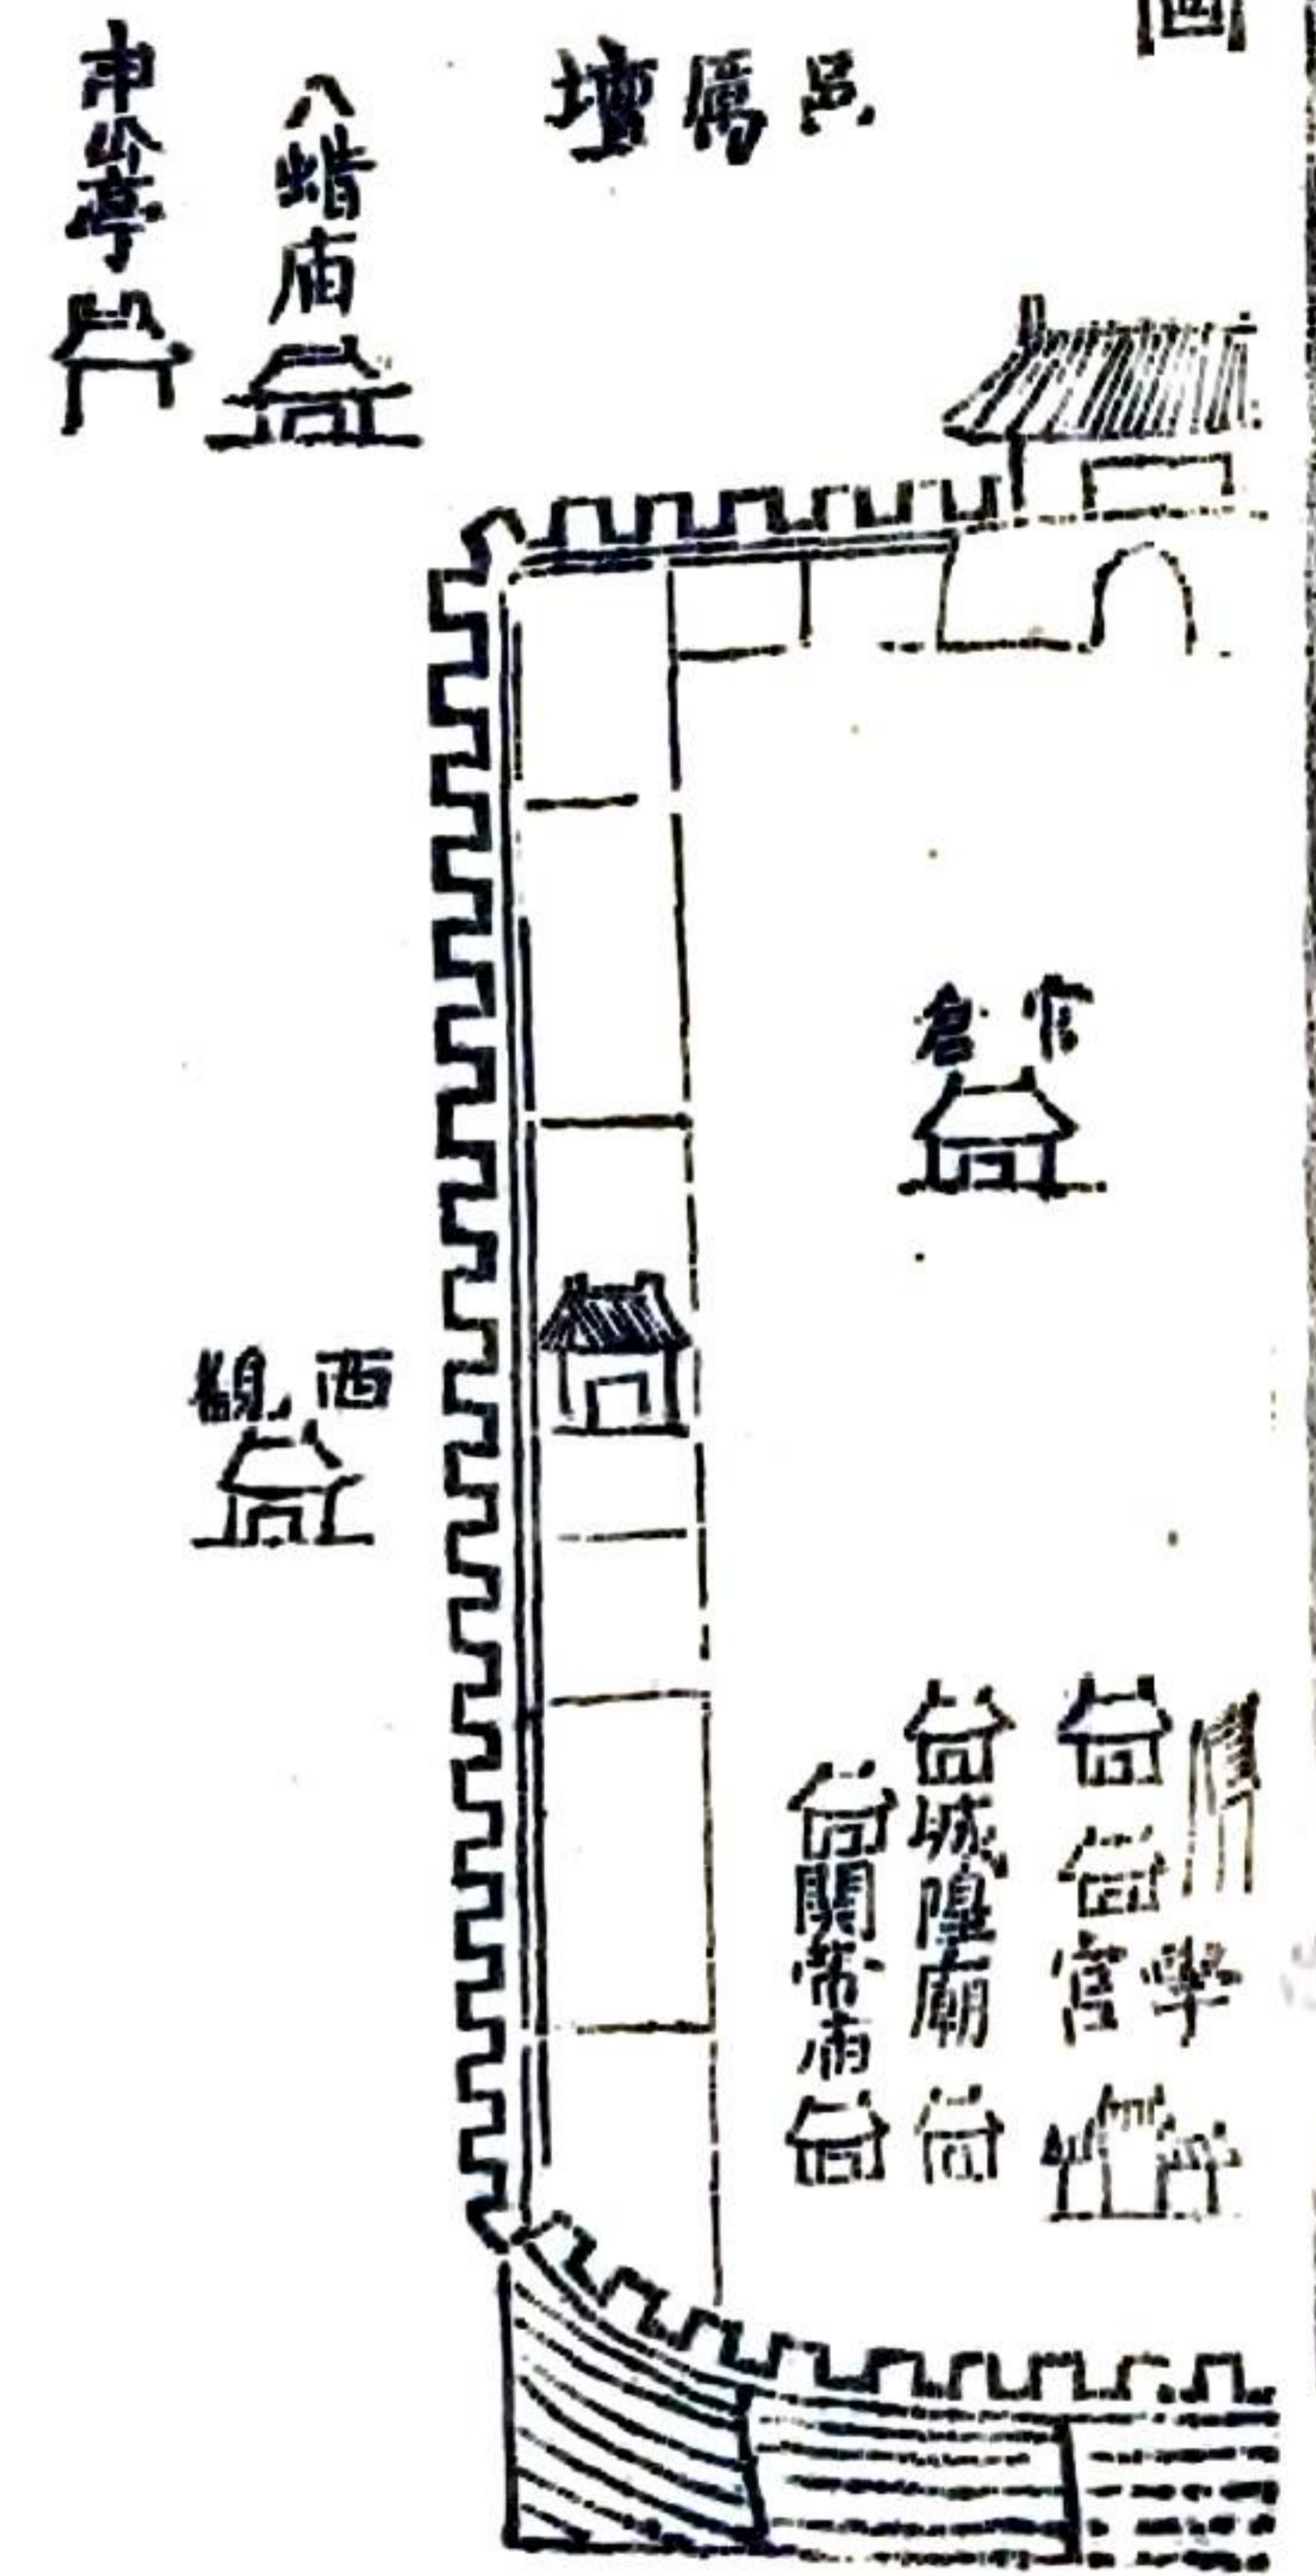 邑厲壇
八蜡庙
申公亭
官倉
西觀
學宮
城隍廟
關帝庙